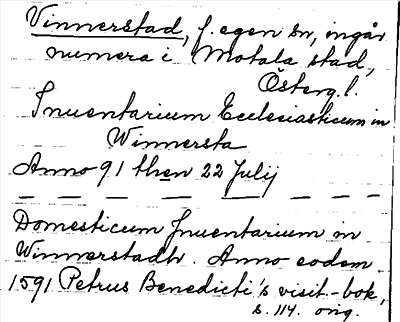 Vinnerstad, f. egen sn, ingår
numera i Motala stad,
Österg. l.
Inuentarium Ecclesiasticum in
Winnersta
Anno 91 then 22 Julij
Domesticum Inuentarium in
Winnerstadh. Anno eodem.
1591 Petrus Benedicti's visit-bok,
s. 114. orig.